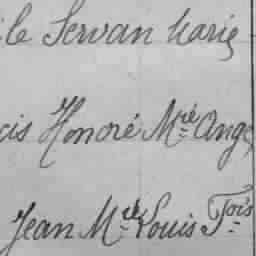 le Servan Marie
cis Honoré Mie Ange
Jean Mel Louis Fois